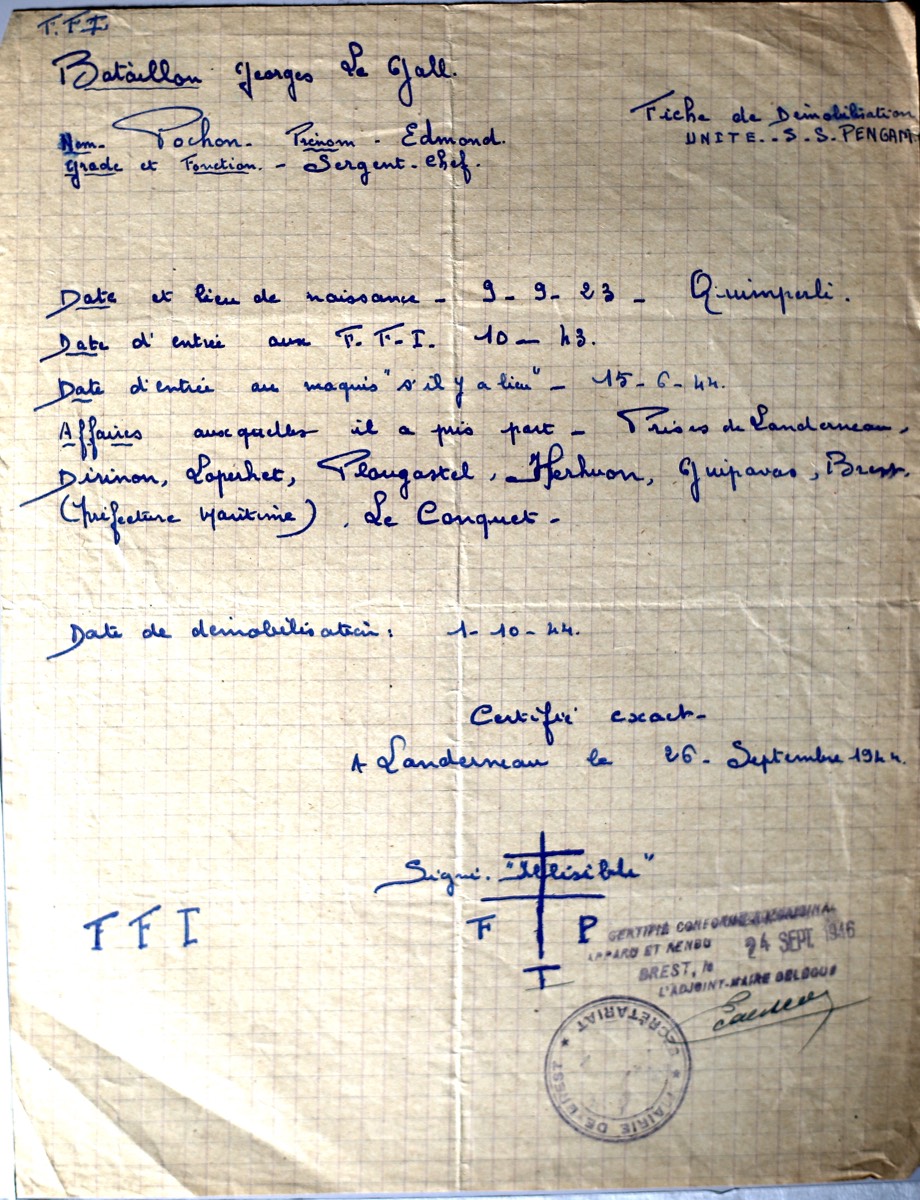 F.F.I
Bataillon Georges Le Gall.
Fiche de Démobilisation
UNITE.. S. S. PENGAM
Nom. Pochon. Prénom. Edmond.
Grade et Fonction. - Sergent-Chef.
Date et lieu de naissance - 9-9-23 - Quimperlé.
Date d'entrée aux F.F.I. 10-43.
Date d'entrée au maquis "s'il y a lieu" - 15-6-44.
Affaires auxquelles il a pris part - Prises de Landerneau,
Dirinon, Loperhet, Plougastel, Kerhuon, Guipavas, Brest.
(Préfecture Maritime). Le Conquet-
Date de démobilisation: 1-10-44.
Certifié exact-
A Landerneau le 26-Septembre 1944.
Signé. "Illisible"
F F I
F P
I
CERTIFIÉ CONFORME A L'ORIGINAL
APPARU ET RENDU
24 SEPT. 1946
BREST, le
L'ADJOINT-MAIRE DELEGUE
SECRETARIAT
MAIRIE DE BREST